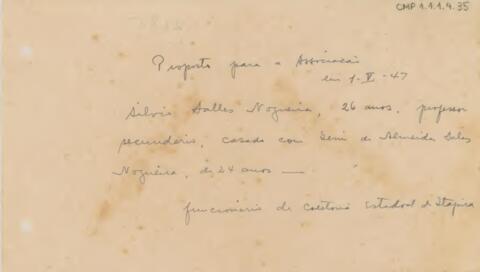 CMP 1.1.1.9.35
Proposto para a Associação
em 1-V-47
Silvio Salles Nogueira, 26 anos, professor
secundario, casado com Geni de Almeida Sales
Nogueira, de 24 anos —
funcionário da Coletoria Estadoal de Itapira